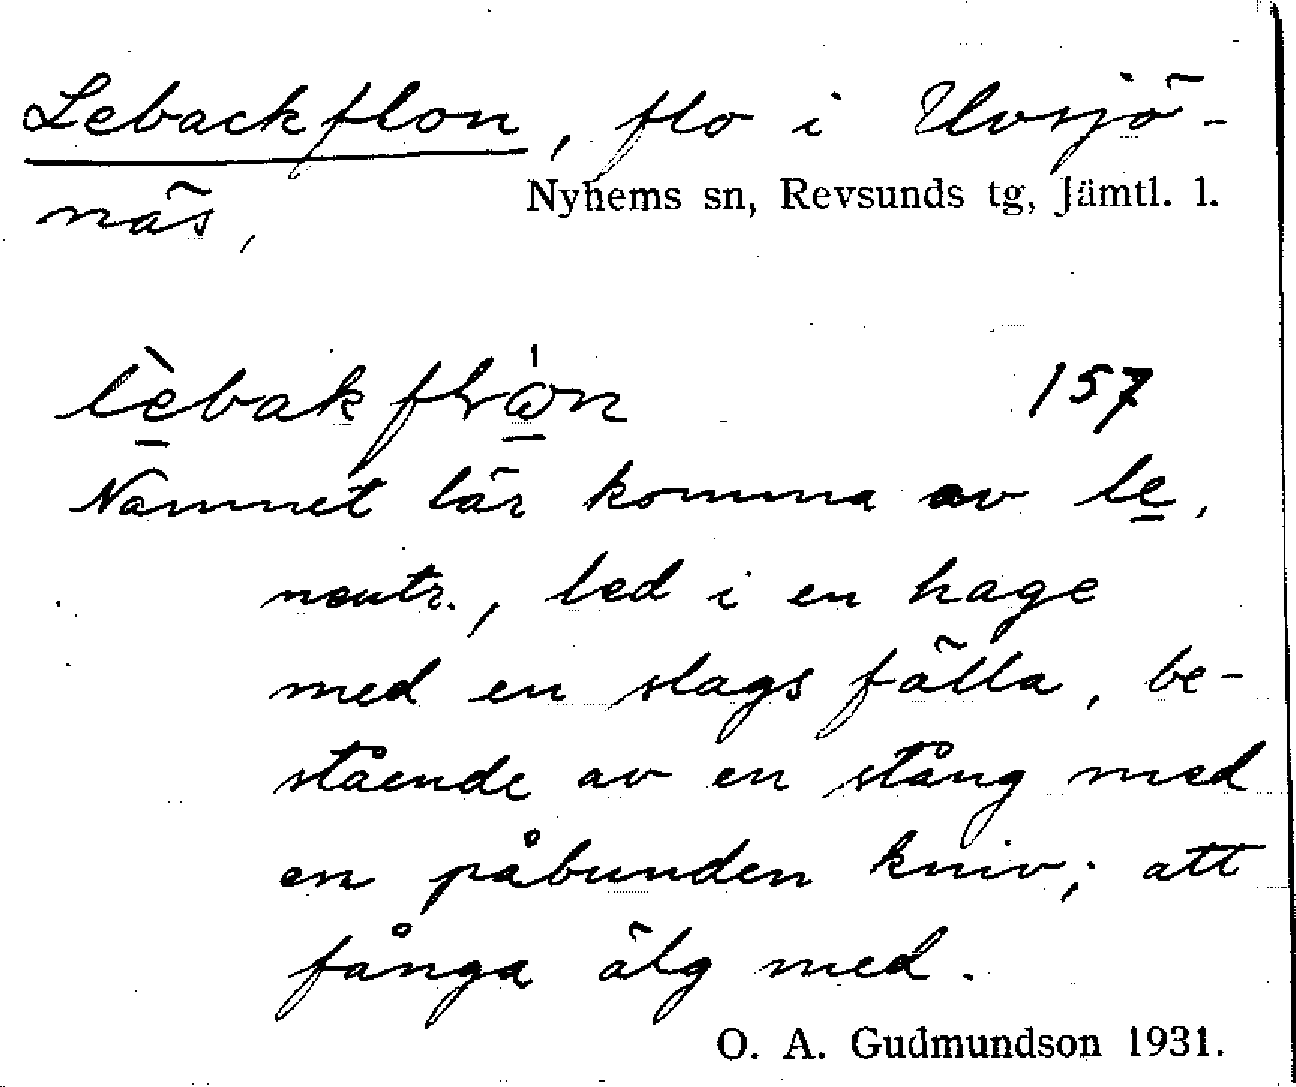 Lebackflon, flo i Uvsjö-
näs,
Nyhems sn, Revsunds tg, Jämtl. l.
157
Namnet lär komma av le,
neutr., led i en hage
med en slags fälla, be-
stående av en stång med
en påbunden kniv; att
fånga älg med.
O. A. Gudmundson 1931.